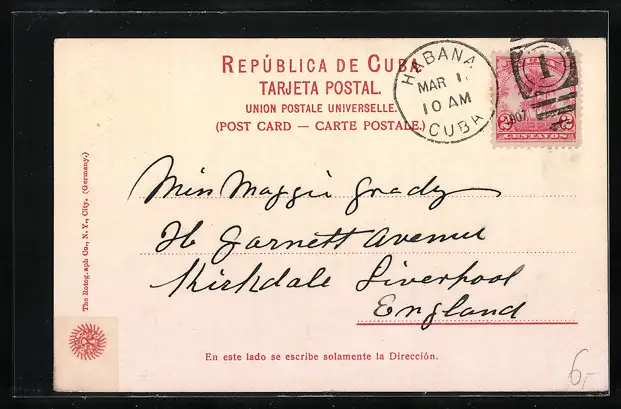 REPÚBLICA DE CUBA
TARJETA POSTAL.
UNION POSTALE UNIVERSELLE.
(POST CARD — CARTE POSTALE.)
HABANA
MAR 1
10 AM
CUBA
1
2 2
CENTAVOS
Miss Maggie Grady
26 Garnett Avenue
Kirkdale Liverpool
England
En este lado se escribe solamente la Dirección.
The Rotograph Co., N. Y., City. (Germany.)
6,-